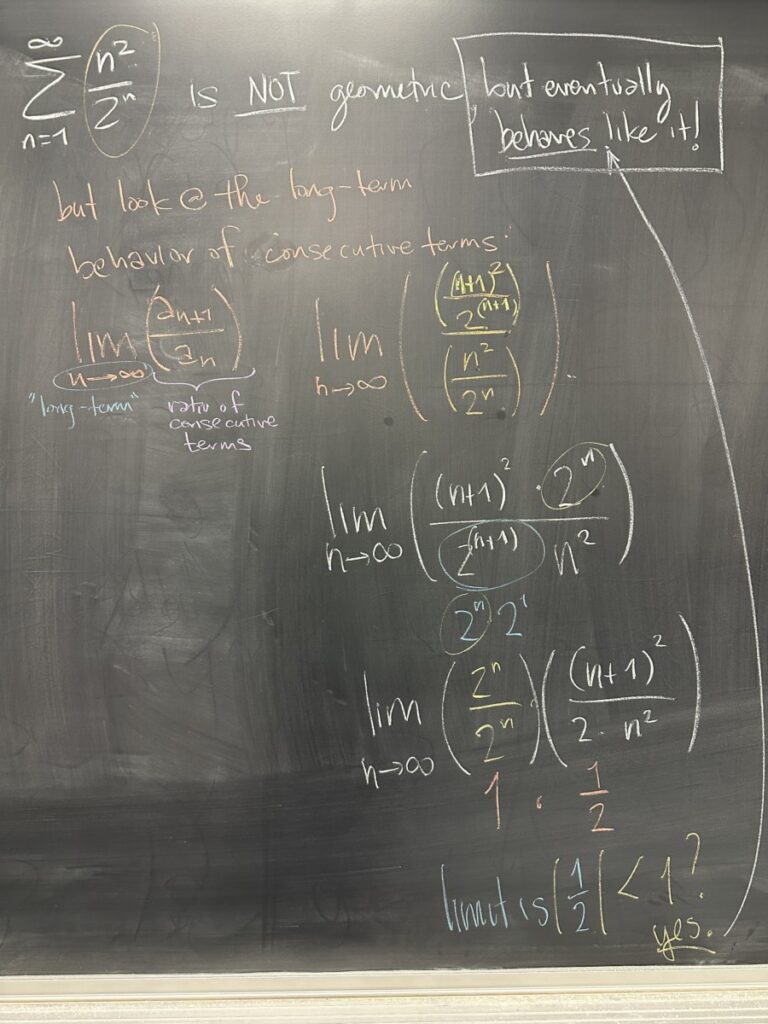 ∞
∑ n² / 2ⁿ is NOT geometric, but eventually
n=1 behaves like it!
but look @ the long-term
behavior of consecutive terms:
lim n→∞ (aₙ₊₁ / aₙ) lim n→∞ (((n+1)² / 2⁽ⁿ⁺¹⁾) / (n² / 2ⁿ)).
"long-term" ratio of
consecutive
terms
lim n→∞ ((n+1)² · 2ⁿ / 2⁽ⁿ⁺¹⁾ n²)
2ⁿ 2¹
lim n→∞ (2ⁿ / 2ⁿ)((n+1)² / 2 · n²)
1 · 1/2
limit is |1/2| < 1?
yes.